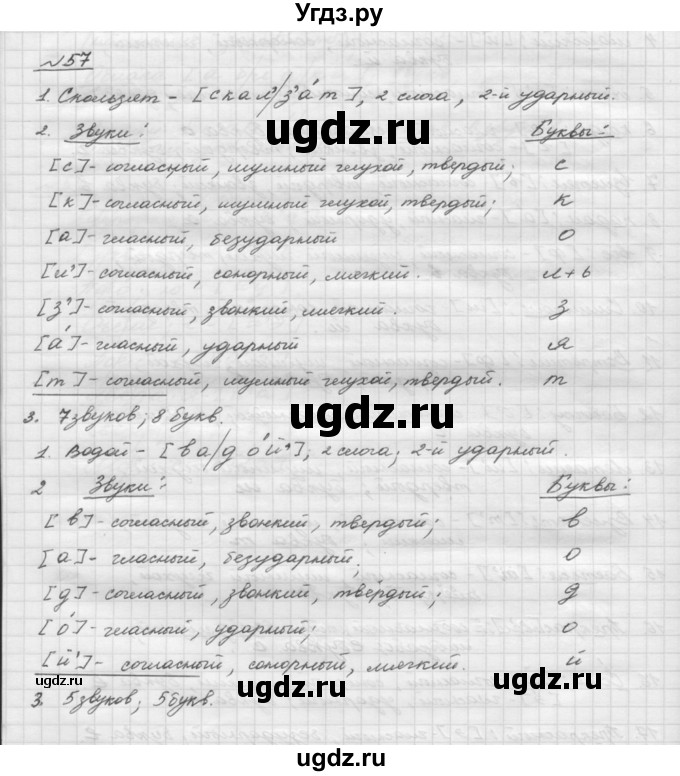 Угдз.ру
№57
1. Скользят – [скал'/з'а́т], 2 слога, 2-й ударный.
2. Звуки: Буквы:
[с]- согласный, шумный глухой, твердый; с
[к]- согласный, шумный глухой, твердый; к
[а]- гласный, безударный о
[л']- согласный, сонорный, мягкий. л+ь
[з']- согласный, звонкий, мягкий. з
[а́]- гласный, ударный я
[т]- согласный, шумный глухой, твердый. т
3. 7 звуков; 8 букв.
1. Водой – [ва/до́й'], 2 слога; 2-й ударный.
2 Звуки: Буквы:
[в]- согласный, звонкий, твердый; в
[а]- гласный, безударный; о
[д]- согласный, звонкий, твёрдый; д
[о́]- гласный, ударный; о
[й']- согласный, сонорный, мягкий. й
3. 5 звуков; 5 букв.
ugdz.ru
ugdz.ru
ugdz.ru
ugdz.ru
ugdz.ru
ugdz.ru
ugdz.ru
ugdz.ru
ugdz.ru